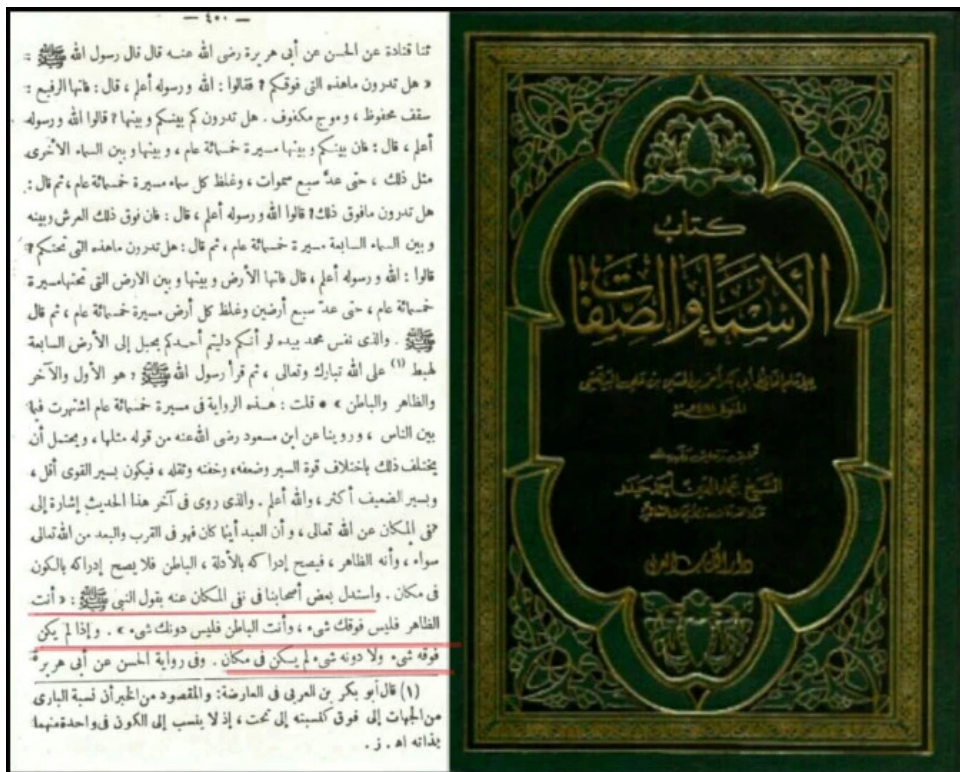 — ٤٠٠ —
ثنا قتادة عن الحسن عن أبى هريرة رضى الله عنه قال قال رسول الله ﷺ :
« هل تدرون ماهذه التى فوقكم ؟ فقالوا : الله ورسوله أعلم ، قال : فانها الرفيع :
سقف محفوظ ، وموج مكفوف . هل تدرون كم بينكم وبينها ؟ قالوا الله ورسوله
أعلم ، قال : فان بينكم وبينها مسيرة خمسمائة عام ، وبينها وبين السماء الأخرى
مثل ذلك ، حتى عدّ سبع سموات ، وغلظ كل سماء مسيرة خمسمائة عام ، ثم قال :
هل تدرون مافوق ذلك ؟ قالوا الله ورسوله أعلم ، قال : فان فوق ذلك العرش وبينه
وبين السماء السابعة مسيرة خمسمائة عام ، ثم قال : هل تدرون ماهذه التى تحتكم ؟
قالوا : الله ورسوله أعلم ، قال فانها الأرض وبينها وبين الارض التى تحتها مسيرة
خمسمائة عام ، حتى عدّ سبع أرضين وغلظ كل أرض مسيرة خمسمائة عام ، ثم قال
ﷺ . والذى نفس محمد بيده لو أنكم دليتم أحدكم بحبل إلى الأرض السابعة
لهبط (١) على الله تبارك وتعالى ، ثم قرأ رسول الله ﷺ ؛ هو الأول والآخر
والظاهر والباطن » • قلت : هذه الرواية فى مسيرة خمسمائة عام اشتهرت فيما
بين الناس ، وروينا عن ابن مسعود رضى الله عنه من قوله مثلها ، ويحتمل أن
يختلف ذلك باختلاف قوة السير وضعفه ، وخفته وثقله ، فيكون بسير القوى أقل ،
وبسير الضعيف أكثر ، والله أعلم . والذى روى فى آخر هذا الحديث إشارة إلى
نفى المكان عن الله تعالى ، وأن العبد أينما كان فهو فى القرب والبعد من الله تعالى
سواء ، وأنه الظاهر ، فيصح إدراكه بالأدلة ، الباطن فلا يصح إدراكه بالكون
فى مكان . واستدل بعض أصحابنا فى نفى المكان عنه بقول النبى ﷺ : « أنت
الظاهر فليس فوقك شىء ، وأنت الباطن فليس دونك شىء » . وإذا لم يكن
فوقه شىء ولا دونه شىء لم يكن فى مكان . وفى رواية الحسن عن أبى هريرة
(١) قال أبو بكر بن العربى فى العارضة : والمقصود من الخبر أن نسبة البارى
من الجهات إلى فوق كنسبته إلى تحت ، إذ لا ينسب إلى الكون فى واحدة منهما
بذاته اه . ز .
كتاب
الأسماء والصفات
دار الكتاب العربي